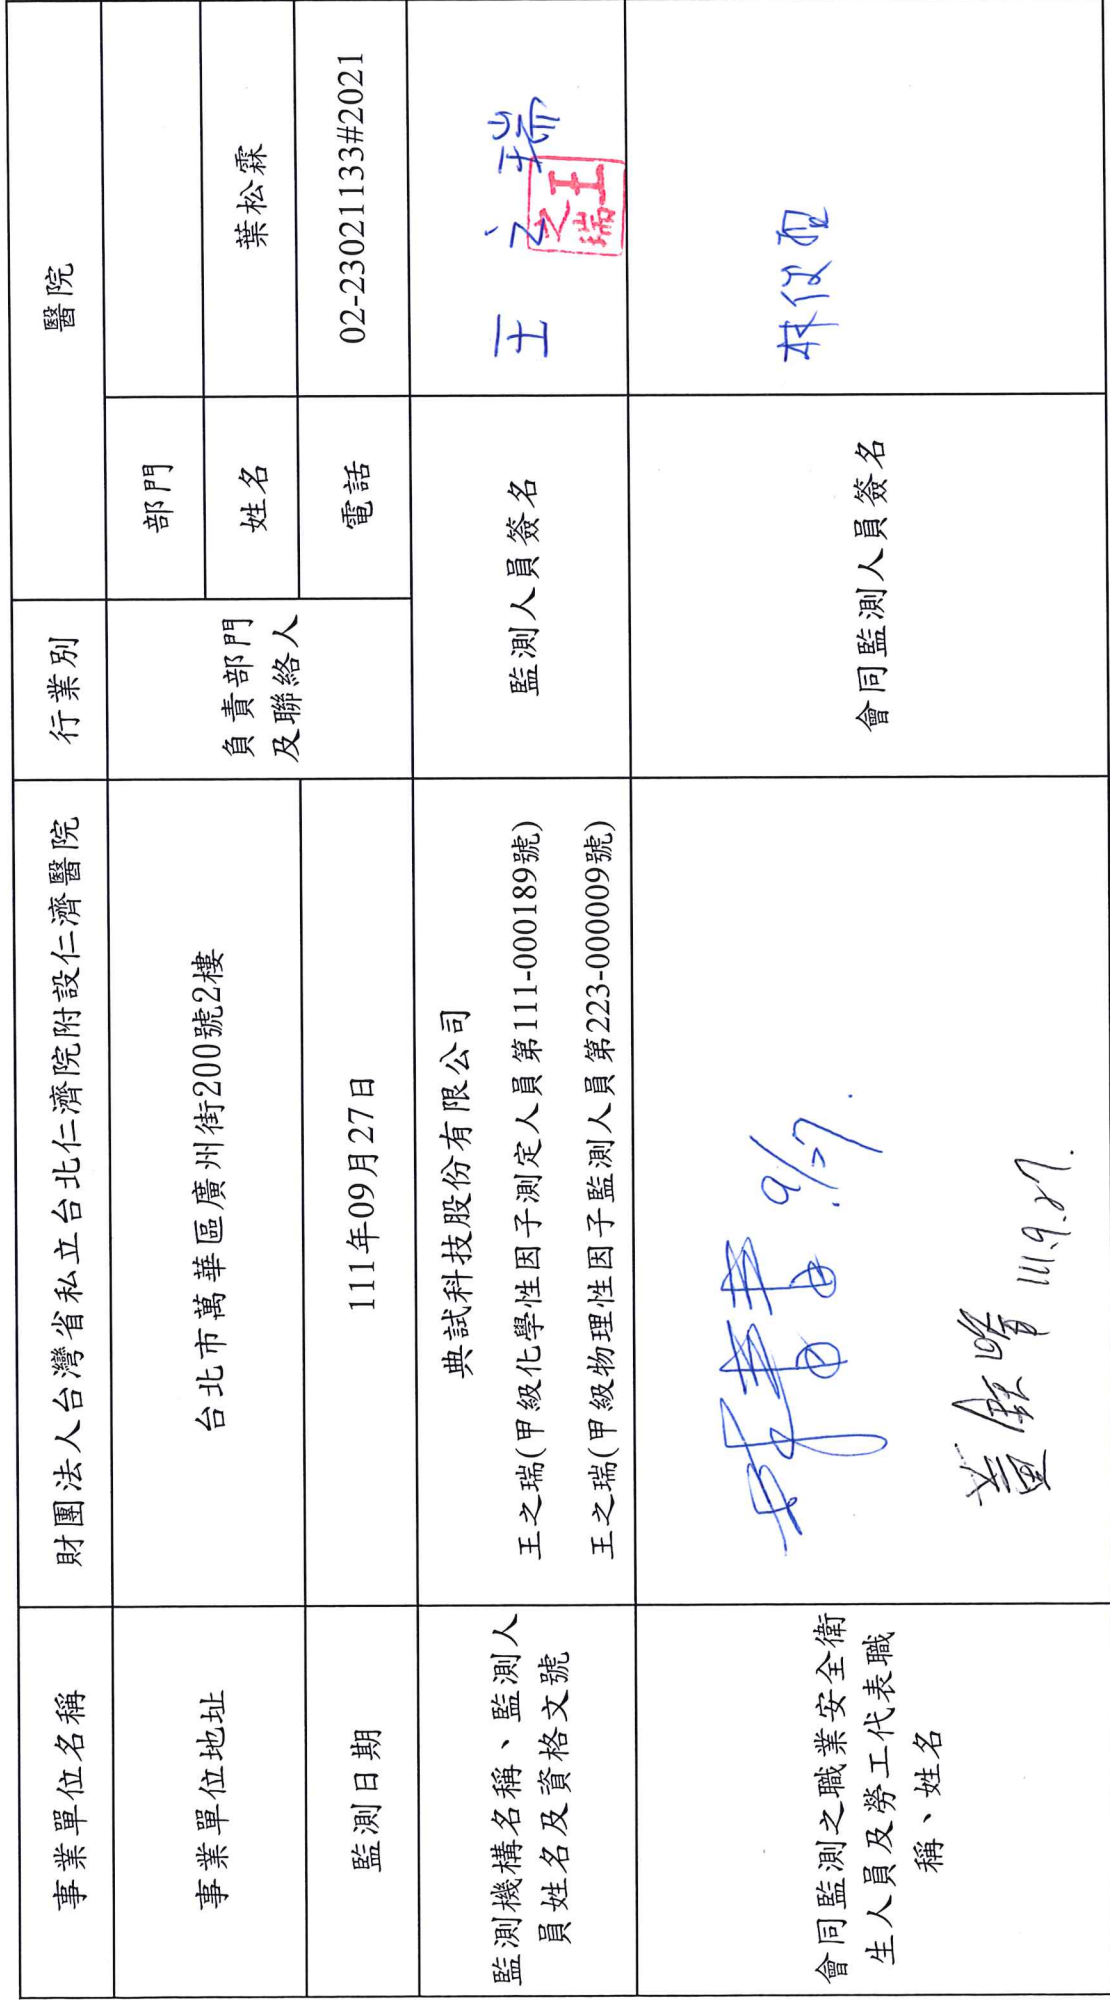 事業單位名稱
財團法人台灣省私立台北仁濟院附設仁濟醫院
行業別
醫院
事業單位地址
台北市萬華區廣州街200號2樓
負責部門
及聯絡人
部門
姓名
葉松霖
監測日期
111年09月27日
電話
02-23021133#2021
監測機構名稱、監測人
員姓名及資格文號
典試科技股份有限公司
王之瑞(甲級化學性因子測定人員第111-000189號)
王之瑞(甲級物理性因子監測人員第223-000009號)
監測人員簽名
王之瑞
王之瑞
會同監測之職業安全衛
生人員及勞工代表職
稱、姓名
9/27.
111.9.27.
會同監測人員簽名